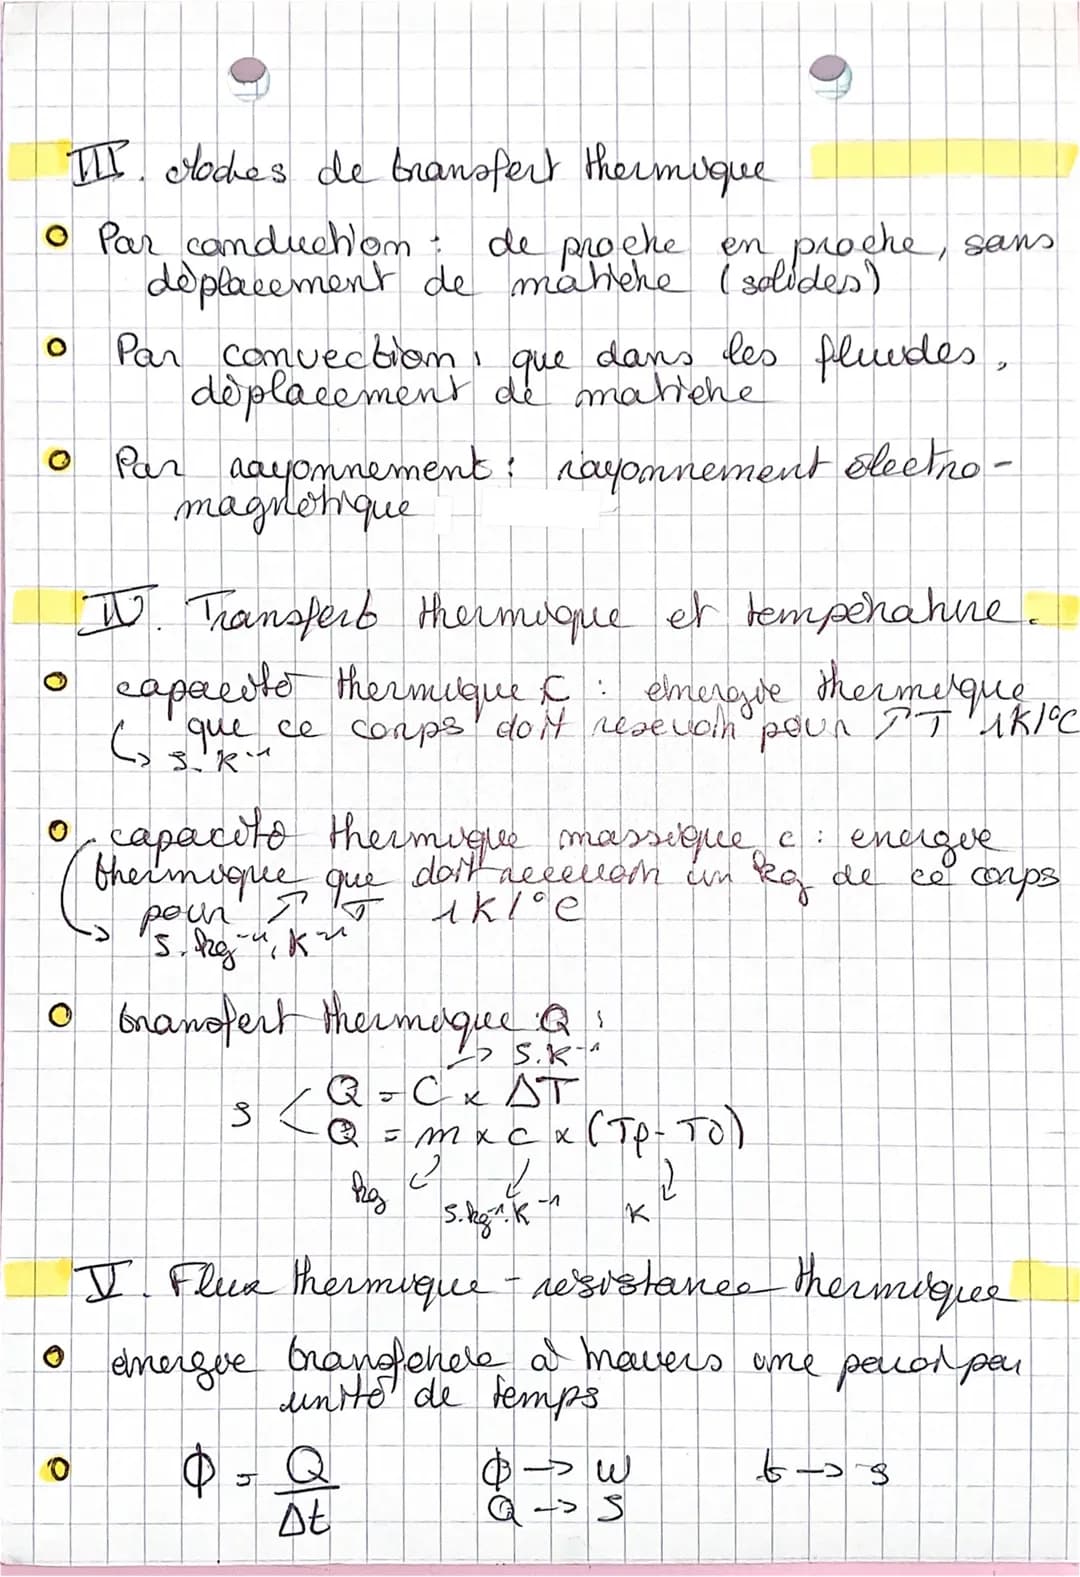 III. Modes de transfert thermique
Par conduction : de proche en proche, sans
déplacement de matière (solides)
Par convection : que dans les fluides,
déplacement de matière
Par rayonnement : rayonnement électro-
magnétique
IV. Transfert thermique et température.
capacité thermique C : énergie thermique
que ce corps doit recevoir pour ↗ T 1K/°C
↳ J.K⁻¹
capacité thermique massique c : energie
thermique que doit recevoir un kg de ce corps
pour ↗ T 1K/°C
↳ J.kg⁻¹.K⁻¹
transfert thermique Q :
↳ J.K⁻¹
Q = C x ΔT
J <
Q = m x c x (Tf - T0)
kg J.kg⁻¹.K⁻¹ K
V. Flux thermique - résistance thermique
énergie transférée à travers une paroi par
unité de temps
Φ = Q/Δt Φ → W t → s
Q → J